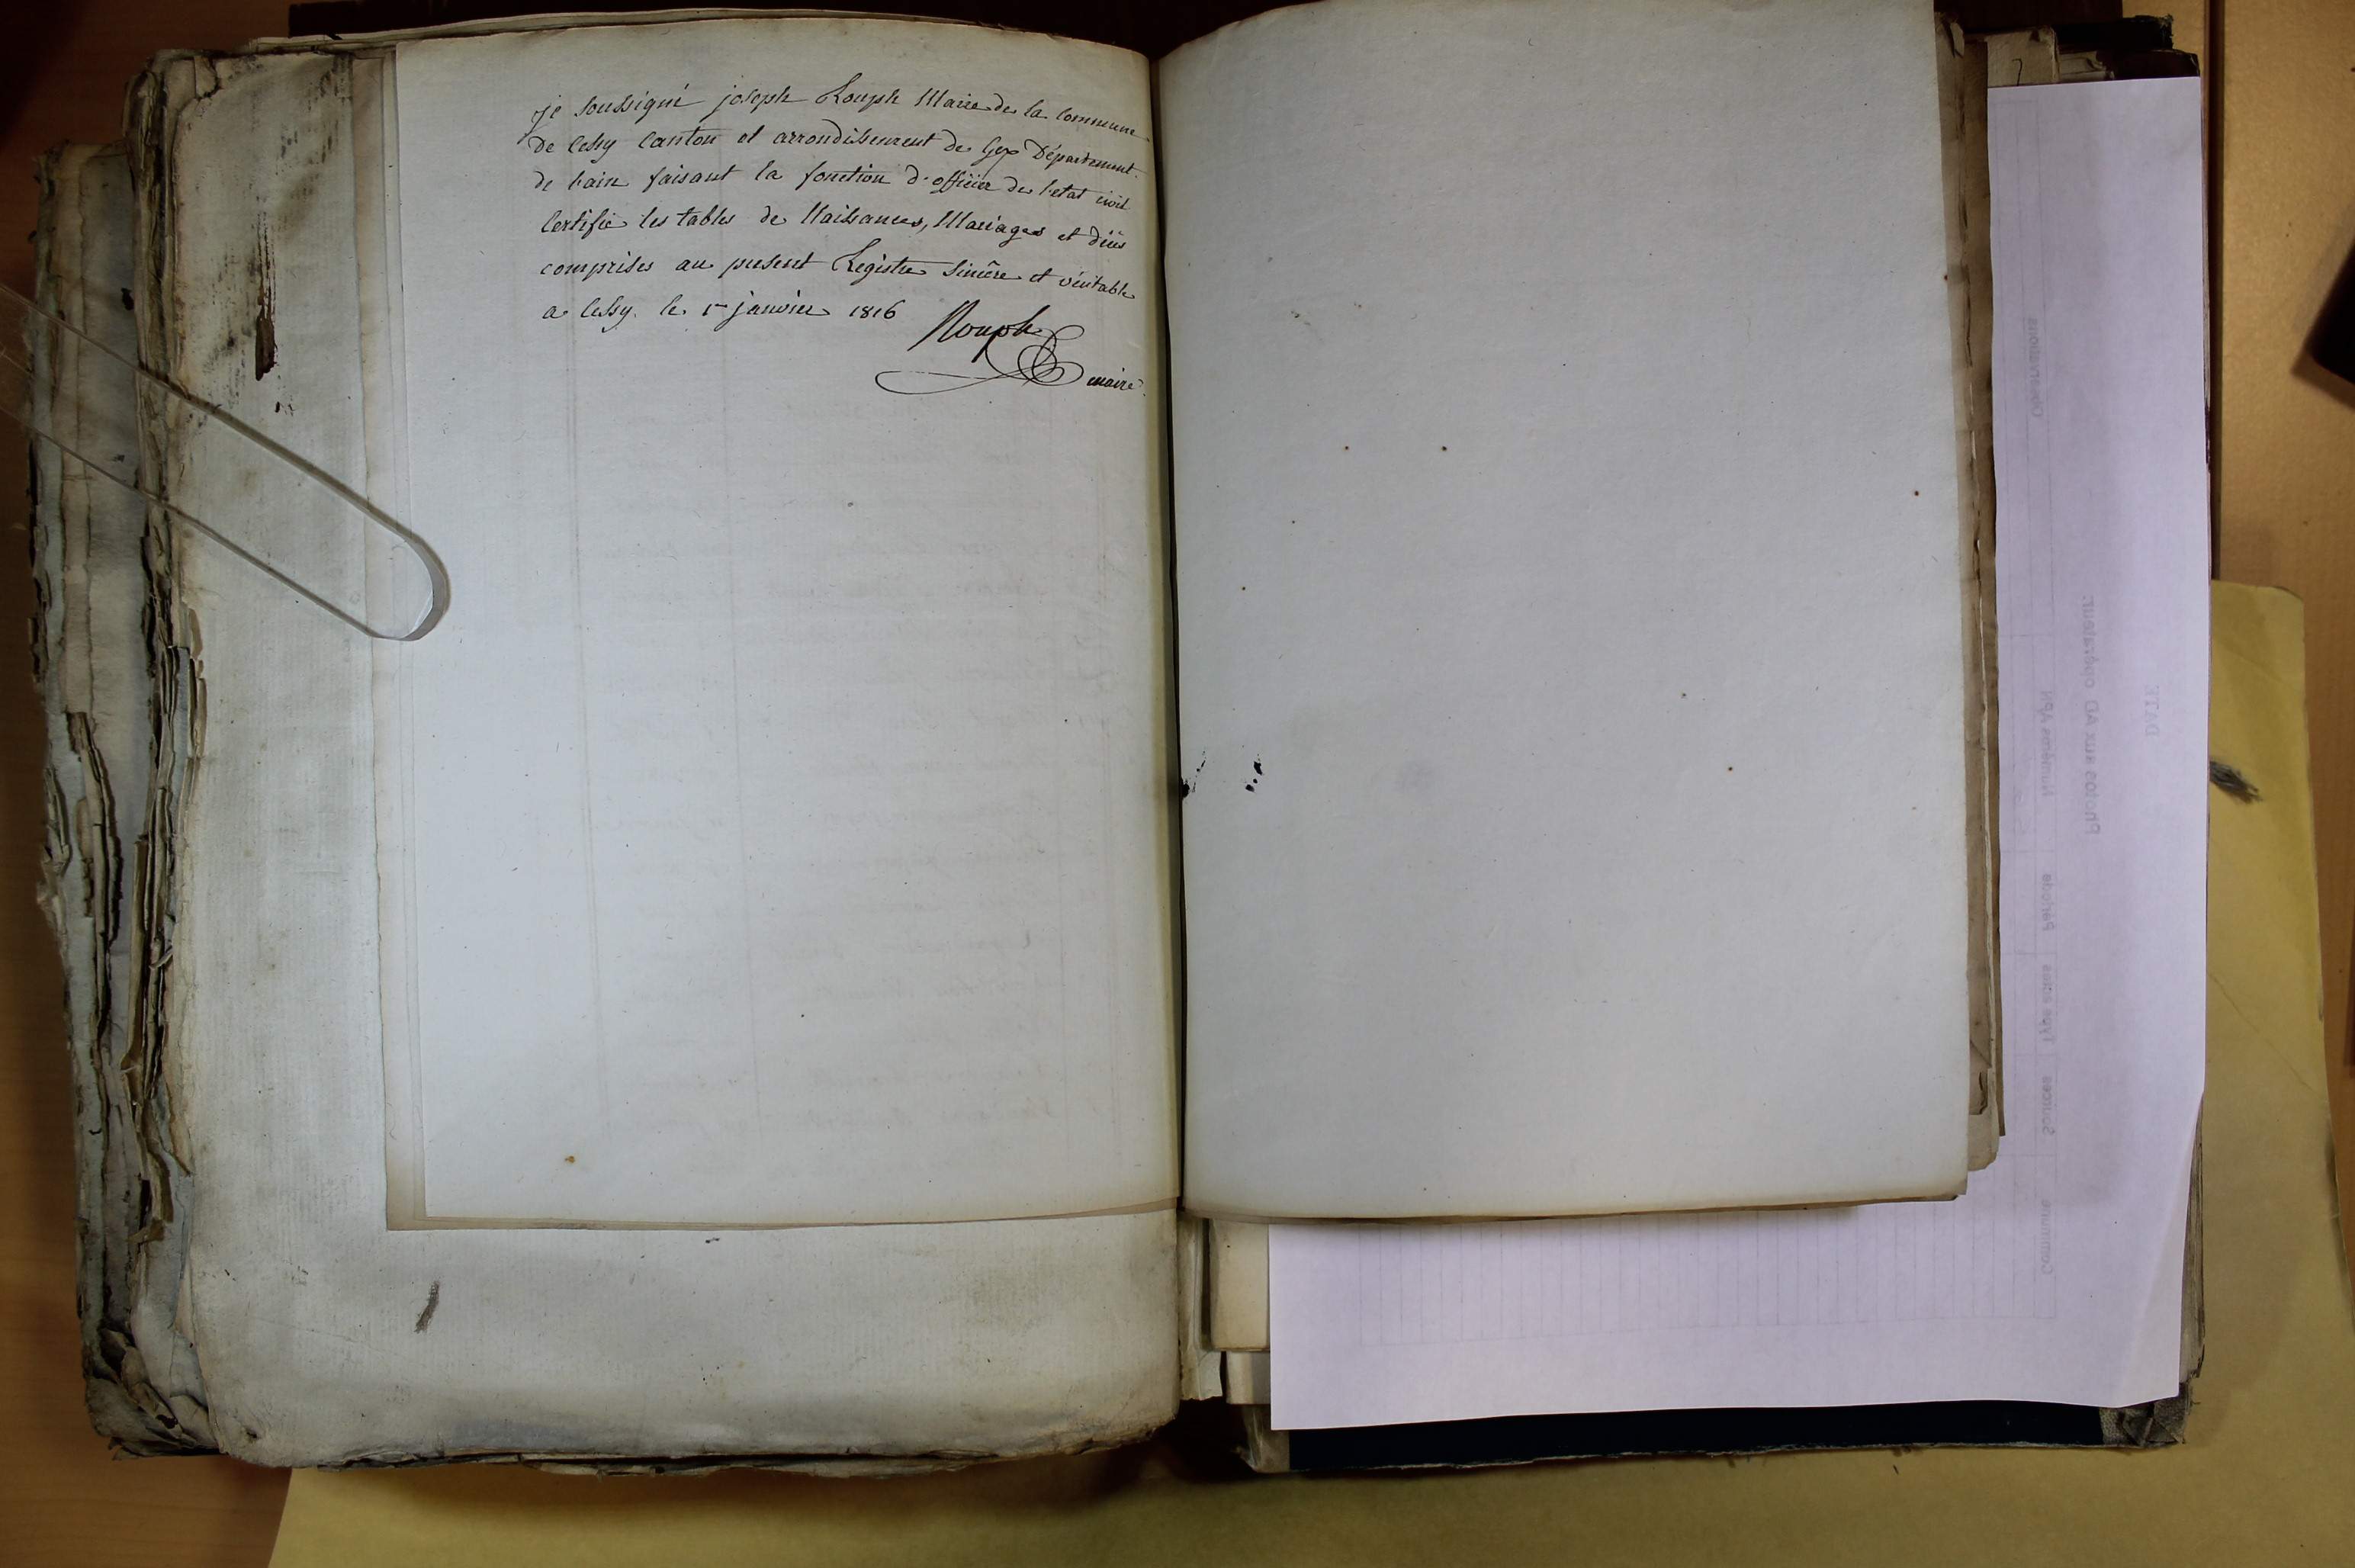 je soussigné joseph Rouph Maire de la commune
de Cessy Canton et arrondissement de Gex Département
de l'ain faisant la fonction d'officier de l'etat civil
Certifie les tables de Naissances, Mariages et déces
comprises au present Registre Sincère et véritable
a Cessy. le 1er janvier 1816
Rouph
maire
Observations
Numéros APN
Période
Type actes
Sources
Commune
Photos aux AD opérateur:
DATE